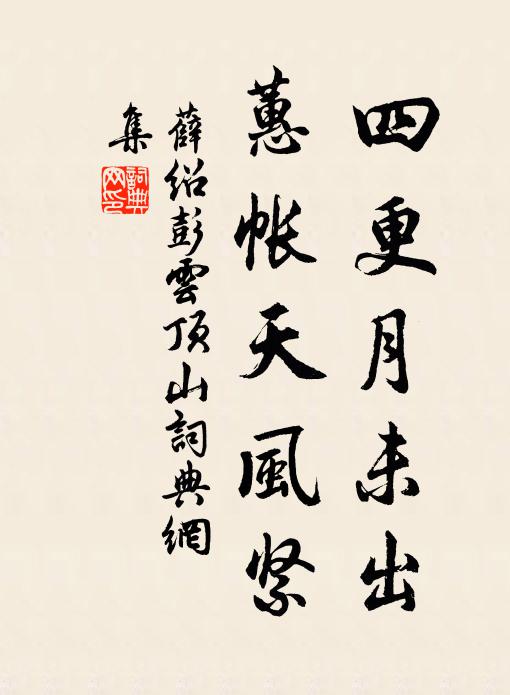 四更月未出
蕙帐天風紧
薛绍彭雲顶山詞典網
集
詞典网印